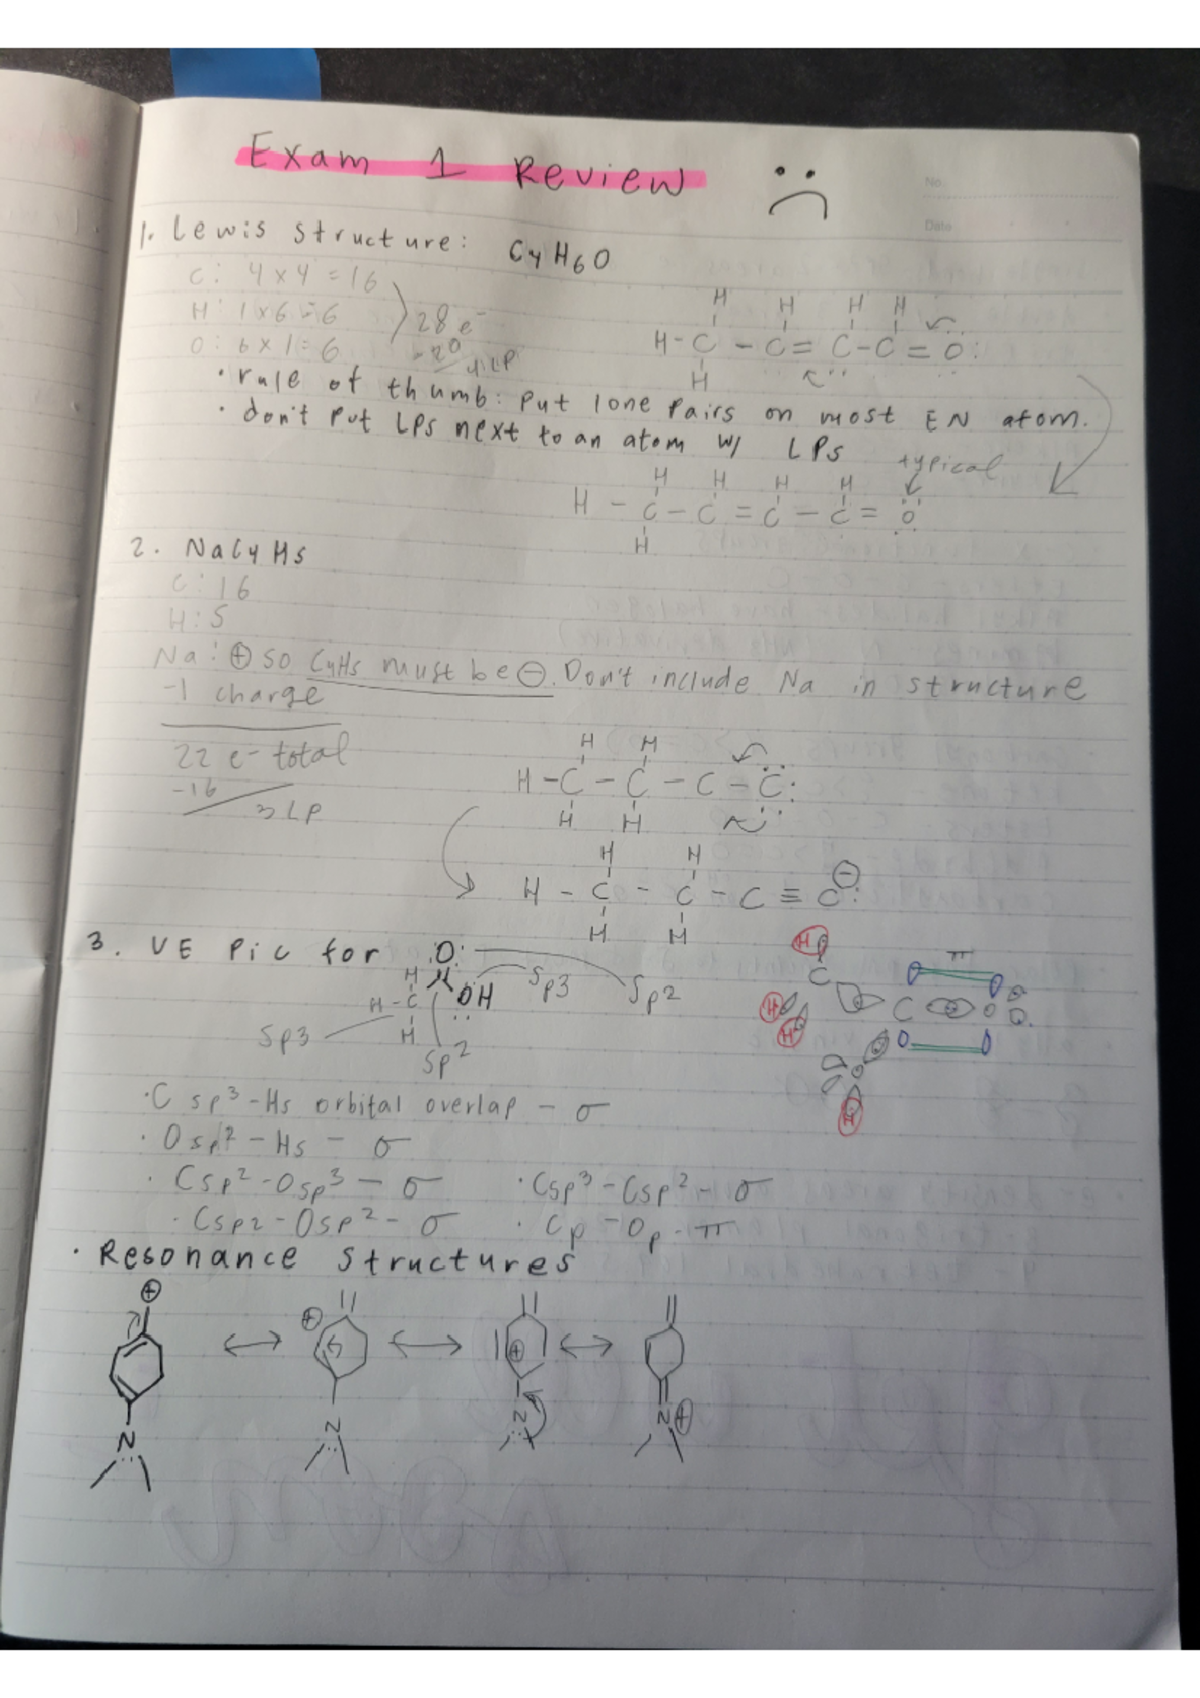 Exam 1 Review
No.
Date
1. Lewis structure: C4H6O
C: 4 x 4 = 16
H: 1 x 6 = 6
O: 6 x 1 = 6
28 e-
-20
4 LP
H H H H
H - C - C = C - C = O:
H
• rule of thumb: put lone pairs on most EN atom.
• don't put LPs next to an atom w/ LPs
typical
H H H H
H - C - C = C - C = O
H
2. NaC4H5
C: 16
H: 5
Na: ⊕ so C4H5 must be ⊖. Don't include Na in structure
-1 charge
22 e- total
-16
3 LP
H H
H - C - C - C - C:
H H
H H
H - C - C - C ≡ C:⊖
H H
3. VE Pic for :O:
H
H - C OH
H
sp3 sp2
sp3
sp2
H C π
H C O
H
H
• C sp3 - Hs orbital overlap - σ
• Osp2 - Hs - σ
• Csp2 - Osp3 - σ • Csp3 - Csp2 - σ
• Csp2 - Osp2 - σ • Cp - Op - π
• Resonance structures
⊕ ⊕ ⊕
N N N N ⊕